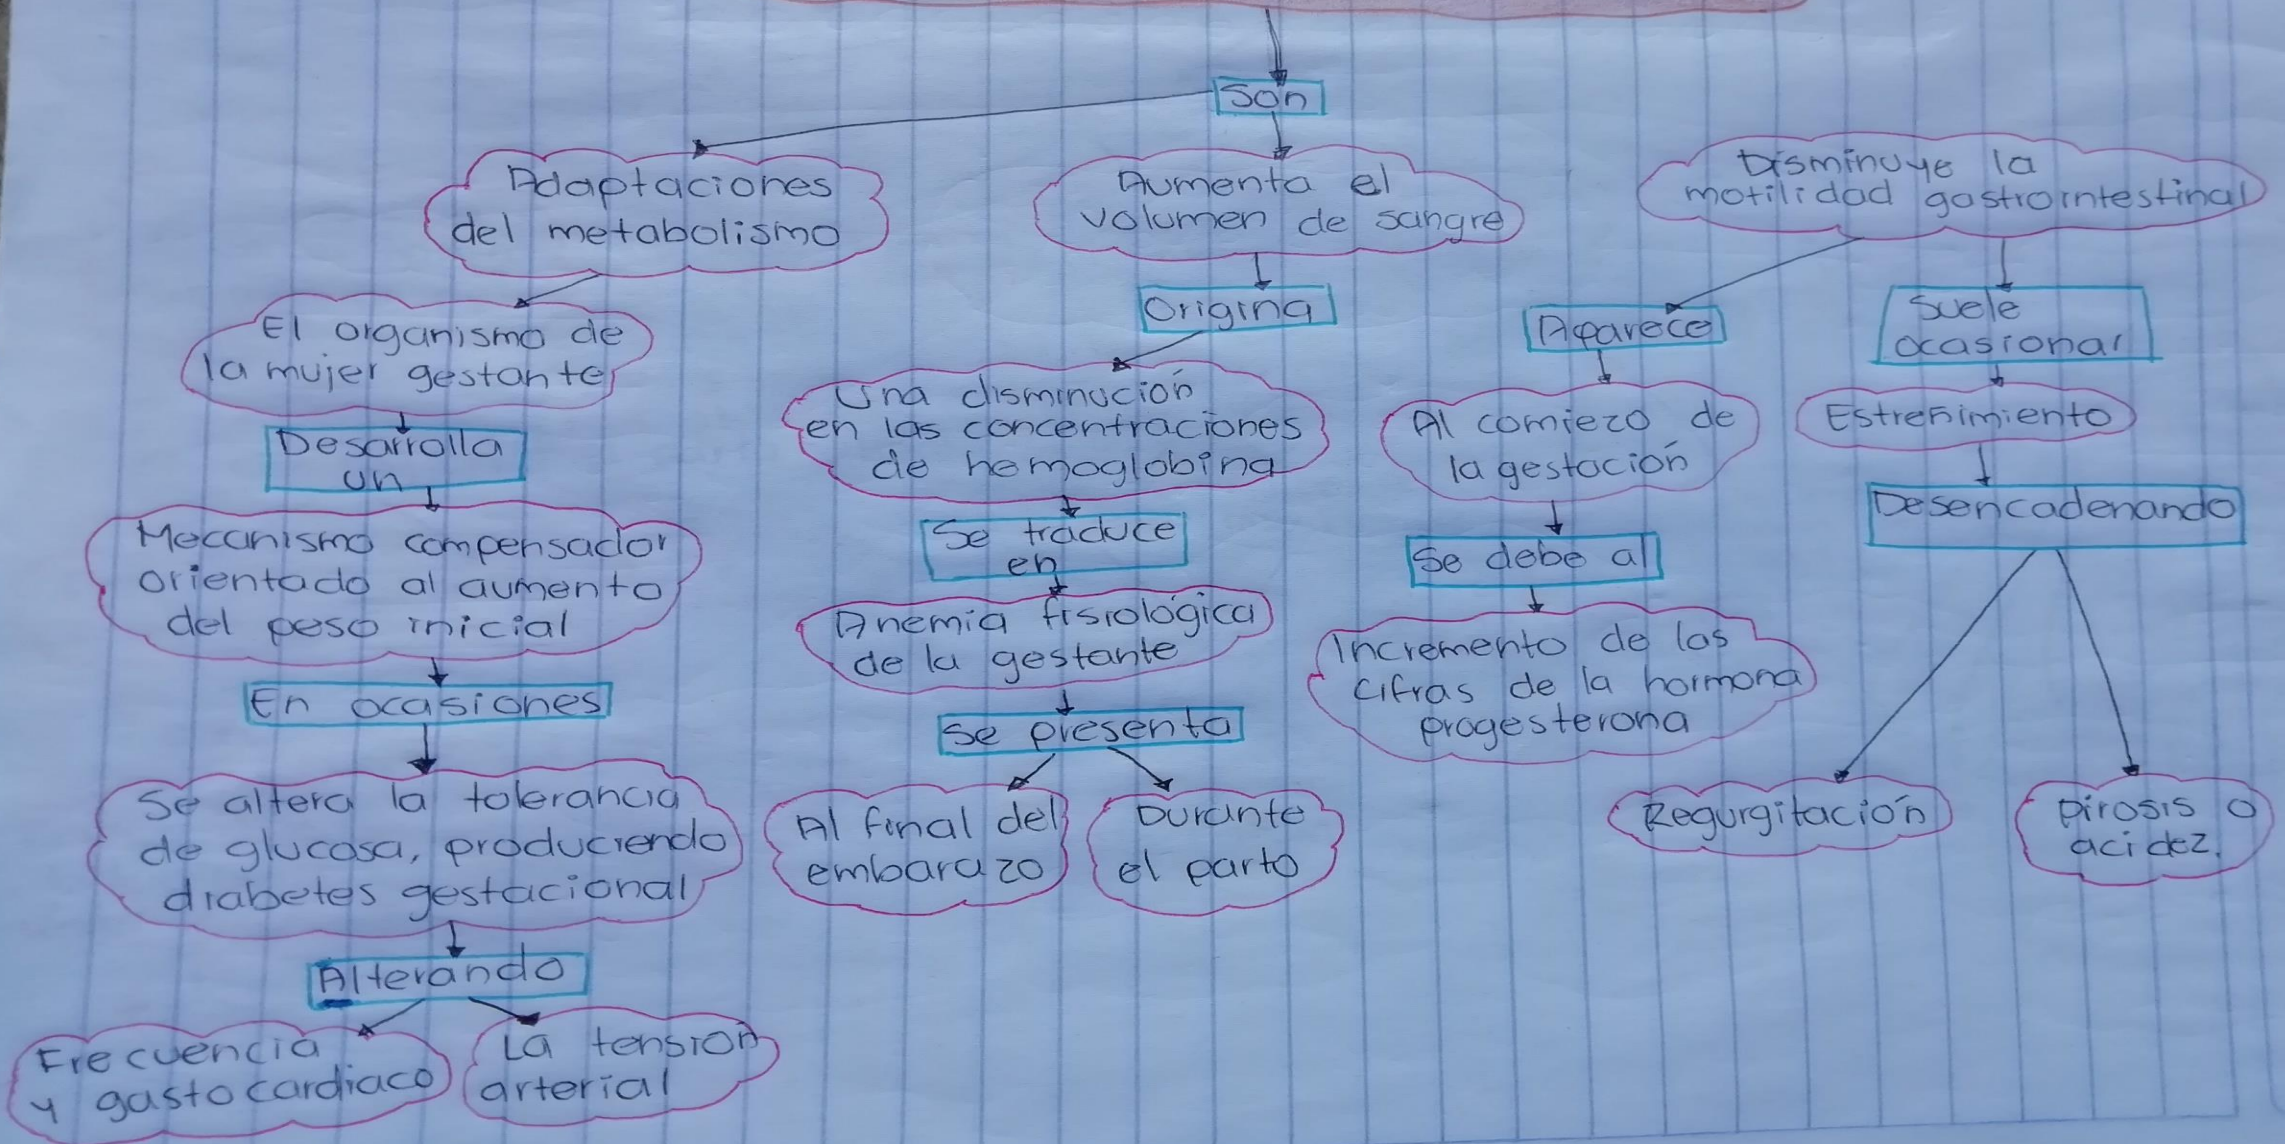 Son
Adaptaciones
del metabolismo
El organismo de
la mujer gestante
Desarrolla
un
Mecanismo compensador
orientado al aumento
del peso inicial
En ocasiones
Se altera la tolerancia
de glucosa, produciendo
diabetes gestacional
Alterando
Frecuencia
y gasto cardiaco
La tensión
arterial
Aumenta el
volumen de sangre
Origina
Una disminución
en las concentraciones
de hemoglobina
Se traduce
en
Anemia fisiológica
de la gestante
Se presenta
Al final del
embarazo
Durante
el parto
Disminuye la
motilidad gastrointestinal
Aparece
Al comiezo de
la gestación
Se debe al
Incremento de las
cifras de la hormona
progesterona
Suele
ocasionar
Estreñimiento
Desencadenando
Regurgitación
Pirosis o
acidez.